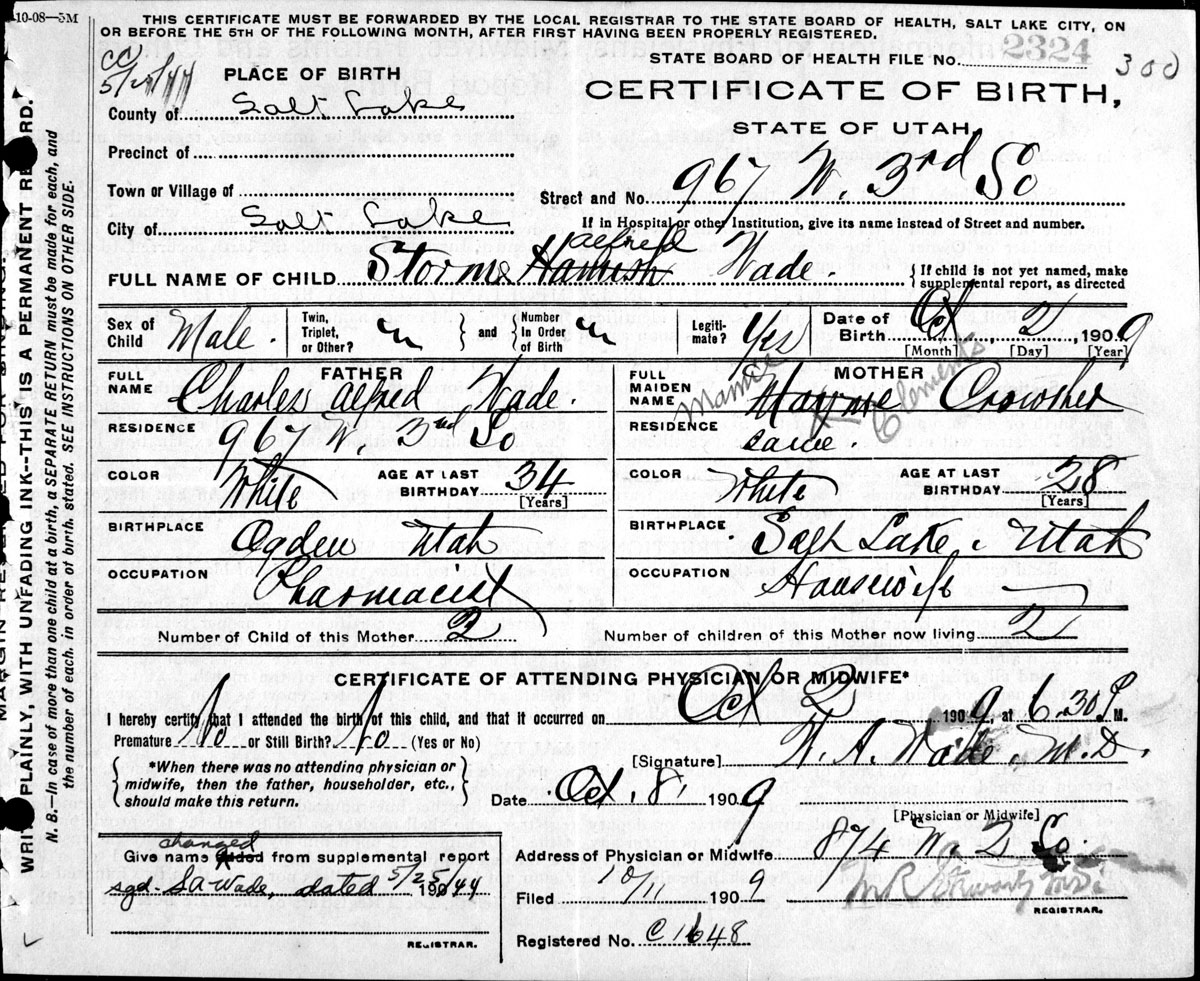 10-08—5M
THIS CERTIFICATE MUST BE FORWARDED BY THE LOCAL REGISTRAR TO THE STATE BOARD OF HEALTH, SALT LAKE CITY, ON
OR BEFORE THE 5TH OF THE FOLLOWING MONTH, AFTER FIRST HAVING BEEN PROPERLY REGISTERED.
STATE BOARD OF HEALTH FILE No. 2324 300
CC
5/25/44
PLACE OF BIRTH
CERTIFICATE OF BIRTH,
STATE OF UTAH,
County of Salt Lake
Precinct of
Town or Village of
City of Salt Lake
Street and No. 967 W. 3rd So
If in Hospital or other Institution, give its name instead of Street and number.
Alfred
FULL NAME OF CHILD Storme Hamish Wade.
{ If child is not yet named, make
supplemental report, as directed
Sex of Child Male. Twin, Triplet, or Other? and Number In Order of Birth Legiti-mate? Yes Date of Birth Oct 2, 1909
[Month] [Day] [Year]
FATHER
FULL NAME Charles Alfred Wade.
RESIDENCE 967 W. 3rd So
COLOR White AGE AT LAST BIRTHDAY 34 [Years]
BIRTHPLACE Ogden Utah
OCCUPATION Pharmacist
MOTHER
FULL MAIDEN NAME Mamie Mayme Crowther
RESIDENCE same.
COLOR White AGE AT LAST BIRTHDAY 28 [Years]
BIRTHPLACE Salt Lake, Utah
OCCUPATION Housewife
Number of Child of this Mother 2
Number of children of this Mother now living 2
CERTIFICATE OF ATTENDING PHYSICIAN OR MIDWIFE*
I hereby certify that I attended the birth of this child, and that it occurred on Oct 2 1909, at 6.30 P M.
Premature No or Still Birth? No (Yes or No)
[Signature] W. A. Wade M.D.
{ *When there was no attending physician or
midwife, then the father, householder, etc.,
should make this return. }
Date Oct. 8, 1909
[Physician or Midwife]
changed
Give name added from supplemental report
sgd. SA Wade, dated 5/25/44 190
REGISTRAR.
Address of Physician or Midwife 874 W. 2 So.
Filed 10/11 1909
REGISTRAR.
Registered No. C1648
WRITE PLAINLY, WITH UNFADING INK--THIS IS A PERMANENT RECORD.
N. B.—In case of more than one child at a birth, a SEPARATE RETURN must be made for each, and
the number of each, in order of birth, stated. SEE INSTRUCTIONS ON OTHER SIDE.